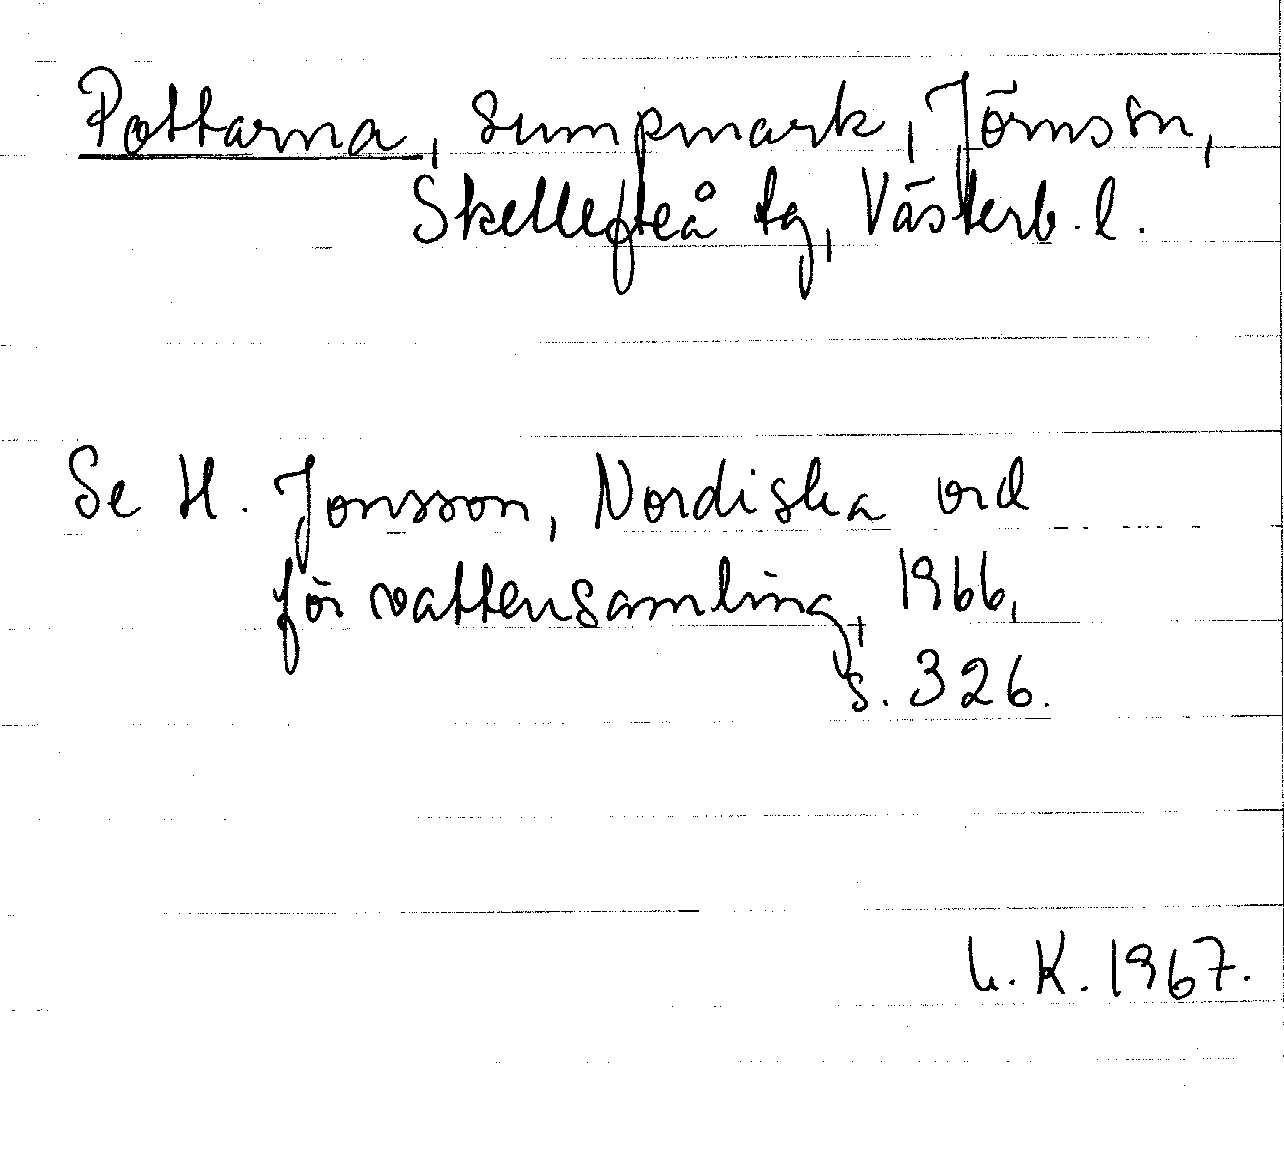 Pottarna, sumpmark, Jörns sn,
Skellefteå tg, Västerb. l.
Se H. Jonsson, Nordiska ord
för vattensamling, 1966,
s. 326.
L. K. 1967.